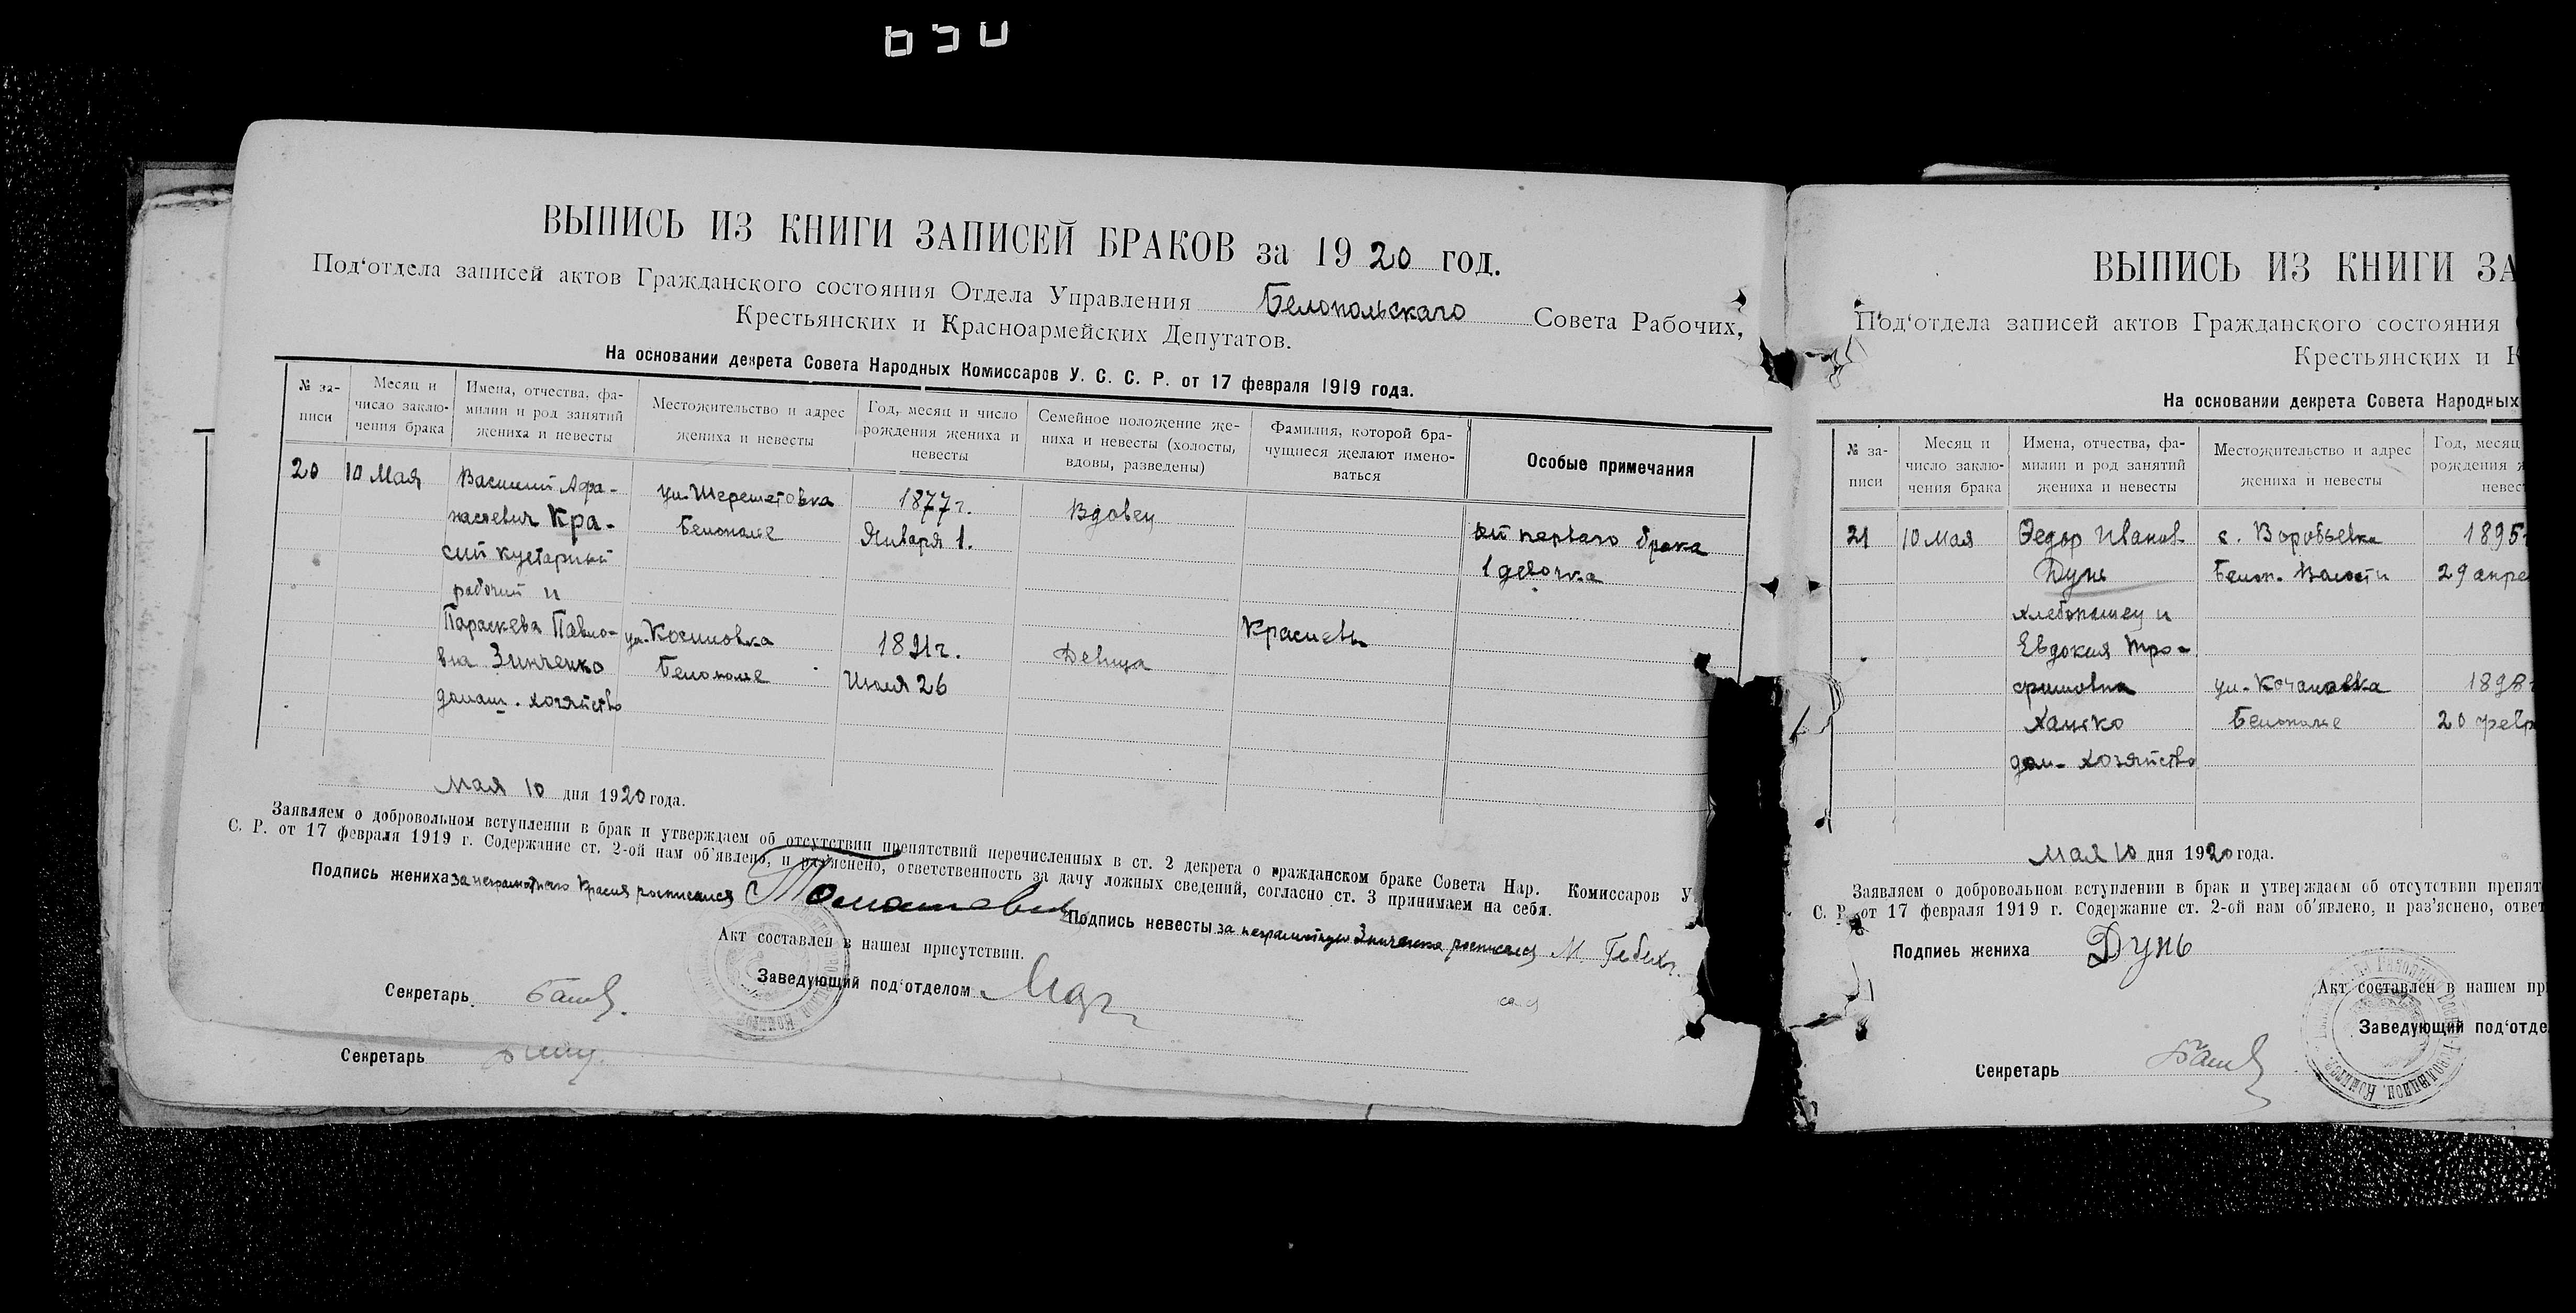 ВЫПИСЬ ИЗ КНИГИ ЗАПИСЕЙ БРАКОВ за 1920 год.
Под‘отдела записей актов Гражданского состояния Отдела Управления Белопольскаго Совета Рабочих,
Крестьянских и Красноармейских Депутатов.
На основании декрета Совета Народных Комиссаров У. С. С. Р. от 17 февраля 1919 года.
№ за-
писи
Месяц и
число заклю-
чения брака
Имена, отчества, фа-
милии и род занятий
жениха и невесты
Местожительство и адрес
жениха и невесты
Год, месяц и число
рождения жениха и
невесты
Семейное положение же-
ниха и невесты (холосты,
вдовы, разведены)
Фамилия, которой бра-
чущиеся желают имено-
ваться
Особые примечания
20
10 Мая
Василий Афа-
насьевич Кра-
сий кустарный
рабочий и
Параскева Павло-
вна Зинченко
домаш. хозяйство
ул. Шереметовка
Белополье
ул. Косиловка
Белополье
1877 г.
Января 1.
1891 г.
Июля 26
Вдовец
Девица
от перваго брака
1 девочка
Мая 10 дня 1920 года.
Заявляем о добровольном вступлении в брак и утверждаем об отсутствии препятствий перечисленных в ст. 2 декрета о гражданском браке Совета Нар. Комиссаров У
С. Р. от 17 февраля 1919 г. Содержание ст. 2-ой нам об’явлено, и раз’яснено, ответственность за дачу ложных сведений, согласно ст. 3 принимаем на себя.
Подпись жениха за неграмотнаго Красия росписался
Подпись невесты за неграмотную Зинченко росписался М.
Акт составлен в нашем присутствии.
Заведующий под‘отделом
Секретарь
Секретарь
ВЫПИСЬ ИЗ КНИГИ ЗА
Под‘отдела записей актов Гражданского состояния
Крестьянских и К
На основании декрета Совета Народных
№ за-
писи
Месяц и
число заклю-
чения брака
Имена, отчества, фа-
милии и род занятий
жениха и невесты
Местожительство и адрес
жениха и невесты
Год, месяц
рождения ж
невес
21
10 Мая
Федор Иванов.
Дунь
хлебопашец и
Евдокия Тро-
фимовна
дом. хозяйство
с. Воробьевка
Белоп. Волости
ул. Кочановка
Белополье
1895
29 апре
1898
20 февр
Мая 10 дня 1920 года.
Заявляем о добровольном вступлении в брак и утверждаем об отсутствии препят
С. Р. от 17 февраля 1919 г. Содержание ст. 2-ой нам об’явлено, и раз’яснено, ответ
Подпись жениха Дунь
Акт составлен в нашем пр
Заведующий под‘отде
Секретарь